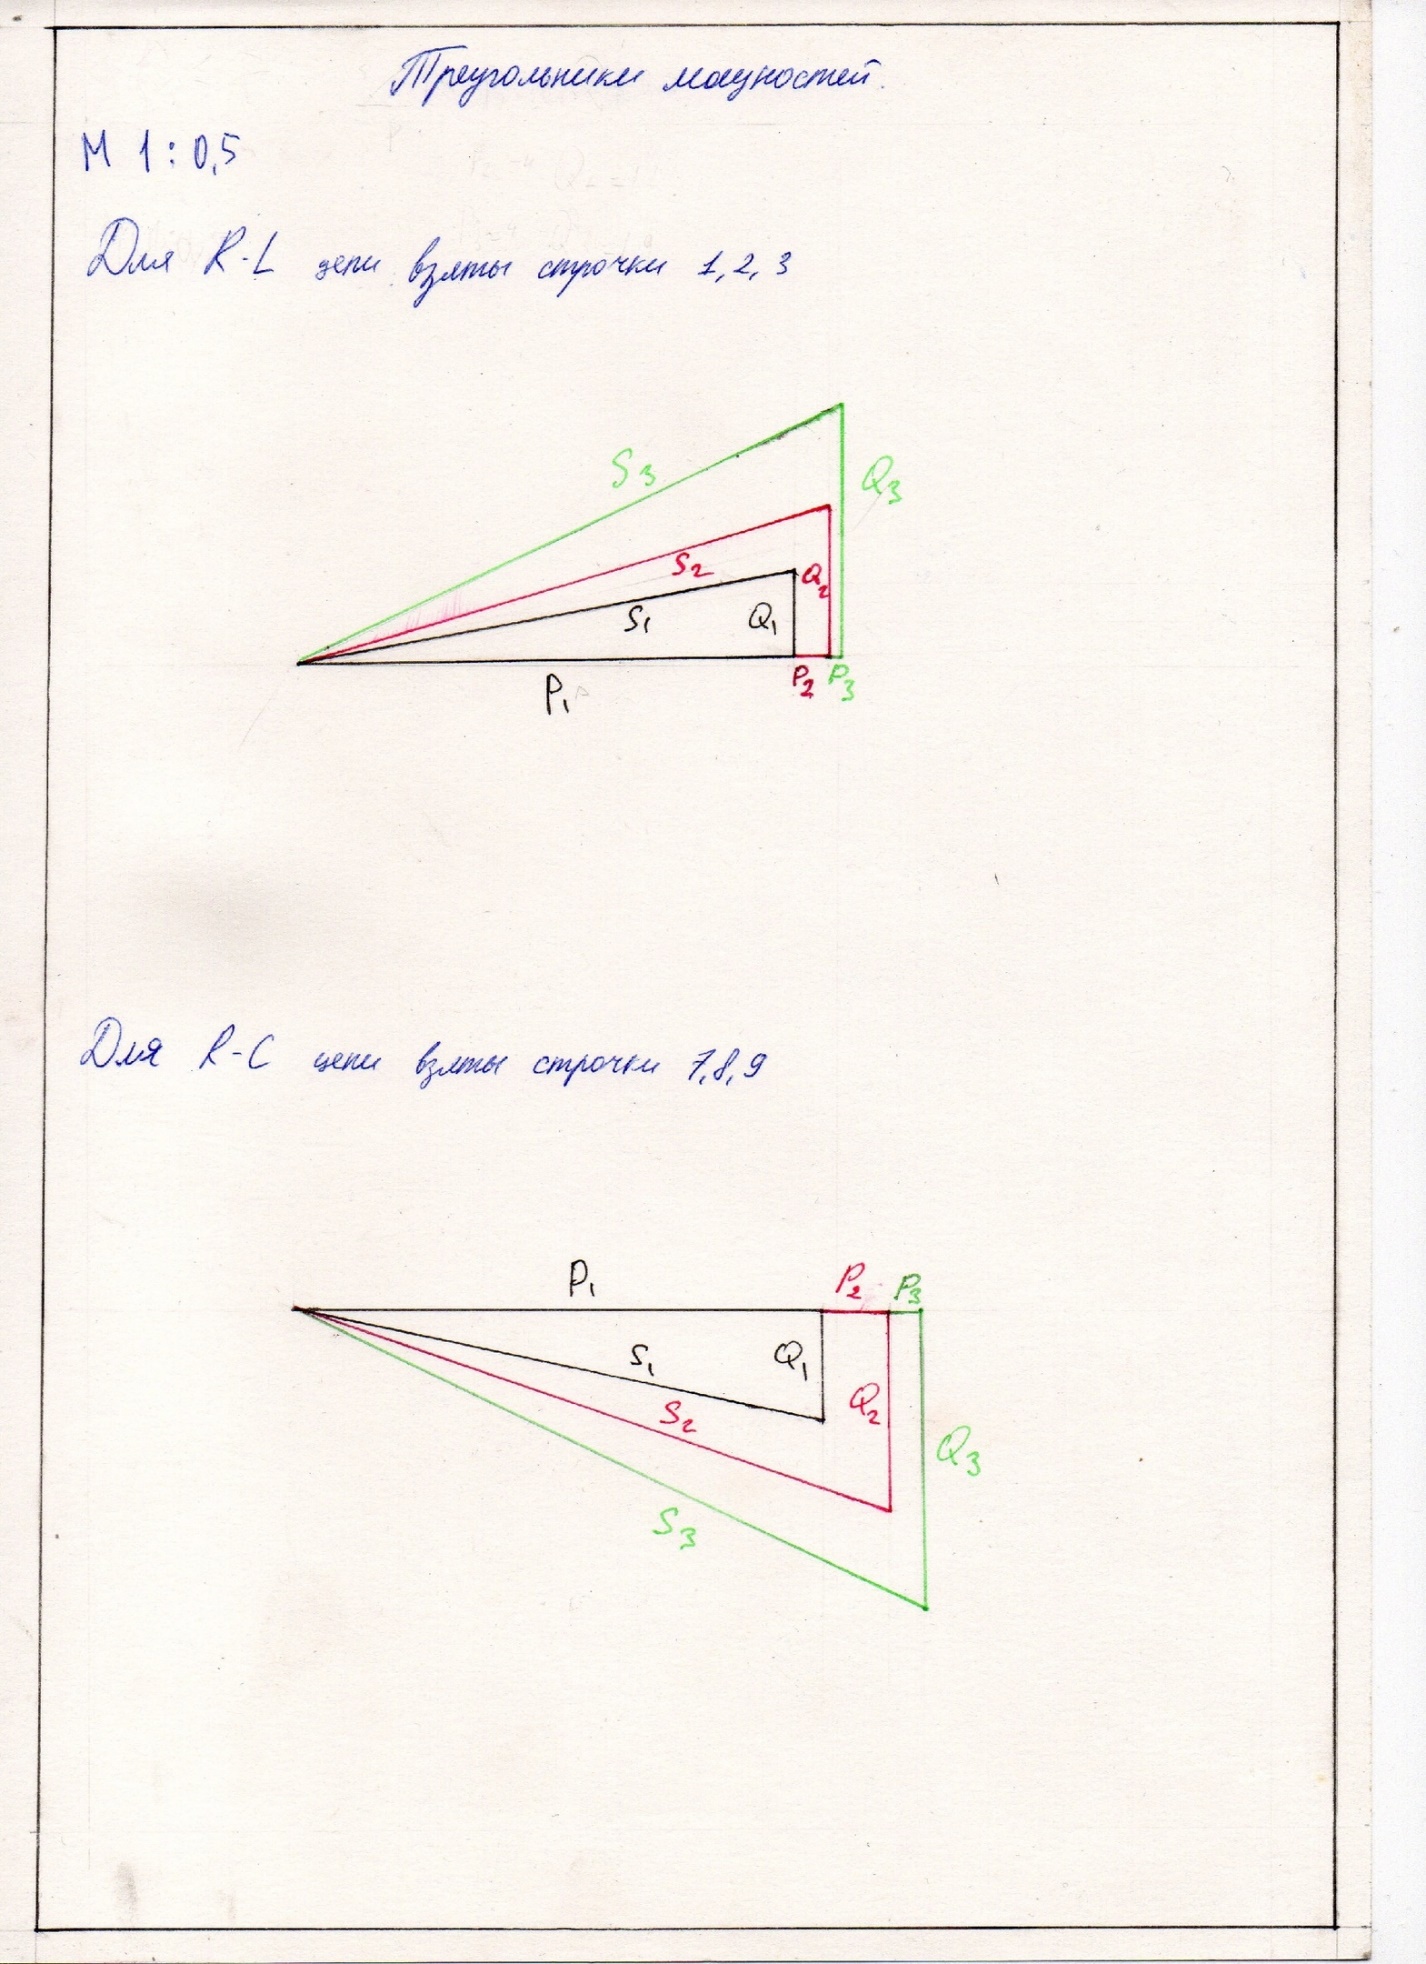 Треугольники мощностей.
М 1:0,5
Для R-L цепи взяты строчки 1,2,3
S3
Q3
S2
Q2
S1
Q1
P1
P2
P3
Для R-C цепи взяты строчки 7,8,9
P1
P2
P3
S1
Q1
S2
Q2
Q3
S3